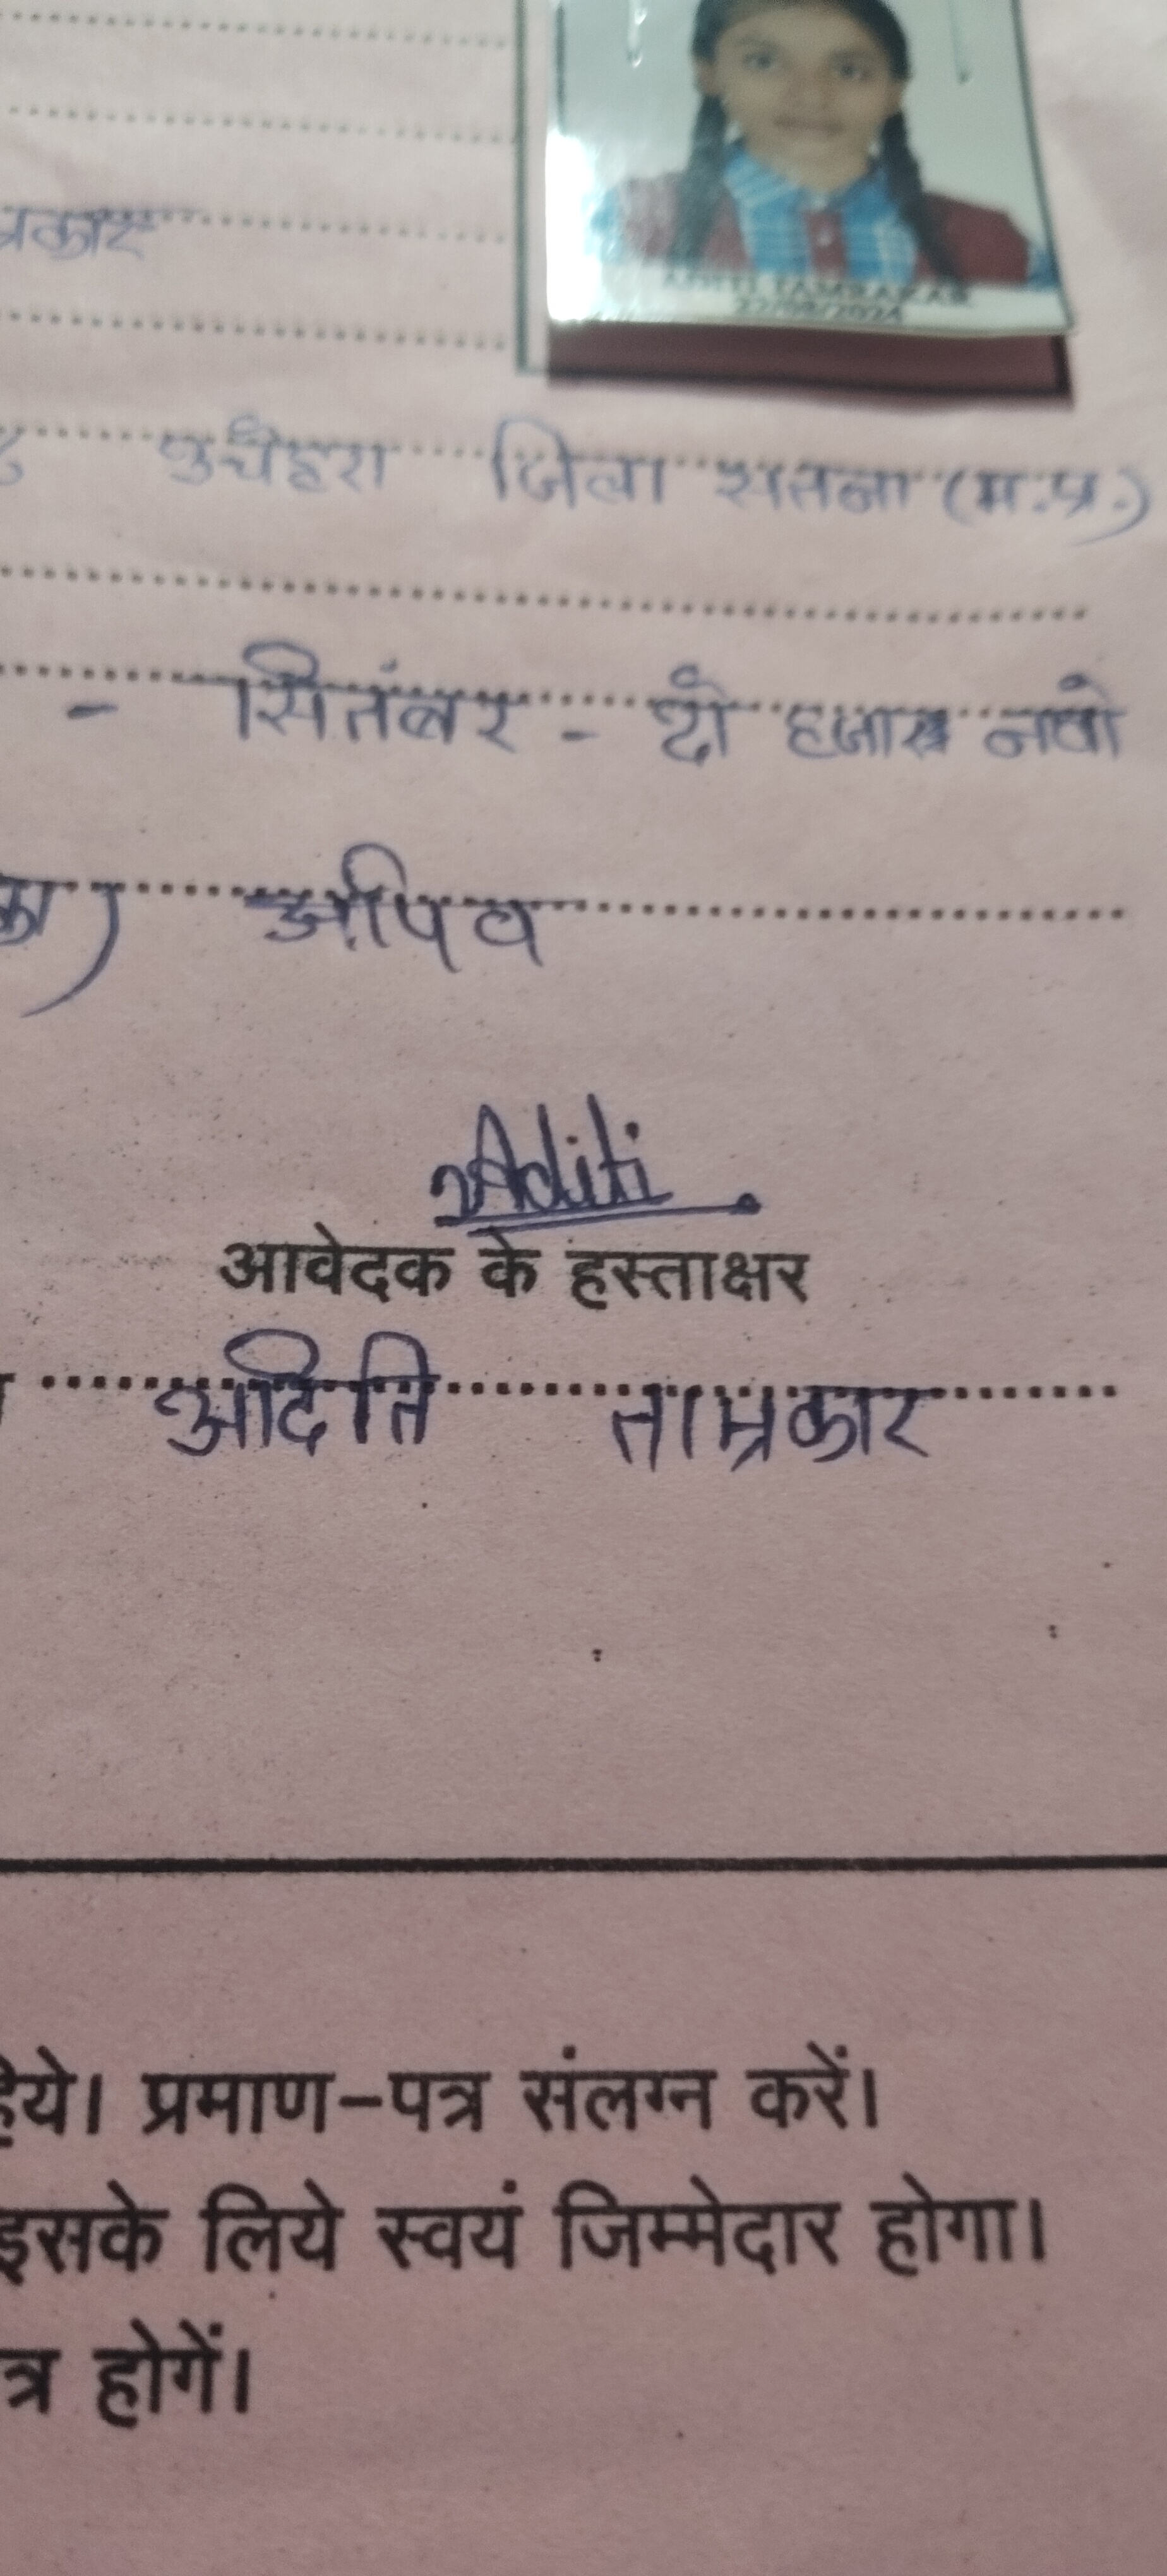 ADITI TAMRAKAR
27/08/2024
प्रकार
उचेहरा जिला सतना (म.प्र.)
- सितंबर - दो हजार नवो
का)
Aditi
आवेदक के हस्ताक्षर
अदिति ताम्रकार
प्रमाण-पत्र संलग्न करें।
इसके लिये स्वयं जिम्मेदार होगा।
त्र होगें।